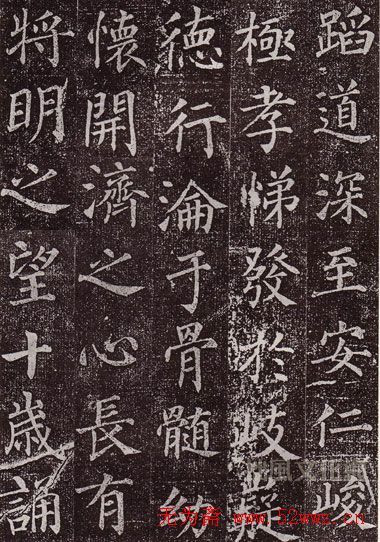 蹈道深至安仁峻
極孝悌發於岐嶷
徳行淪于骨髓幼
懐開濟之心長有
將明之望十歳誦
无为斋 www.52wwz.cn